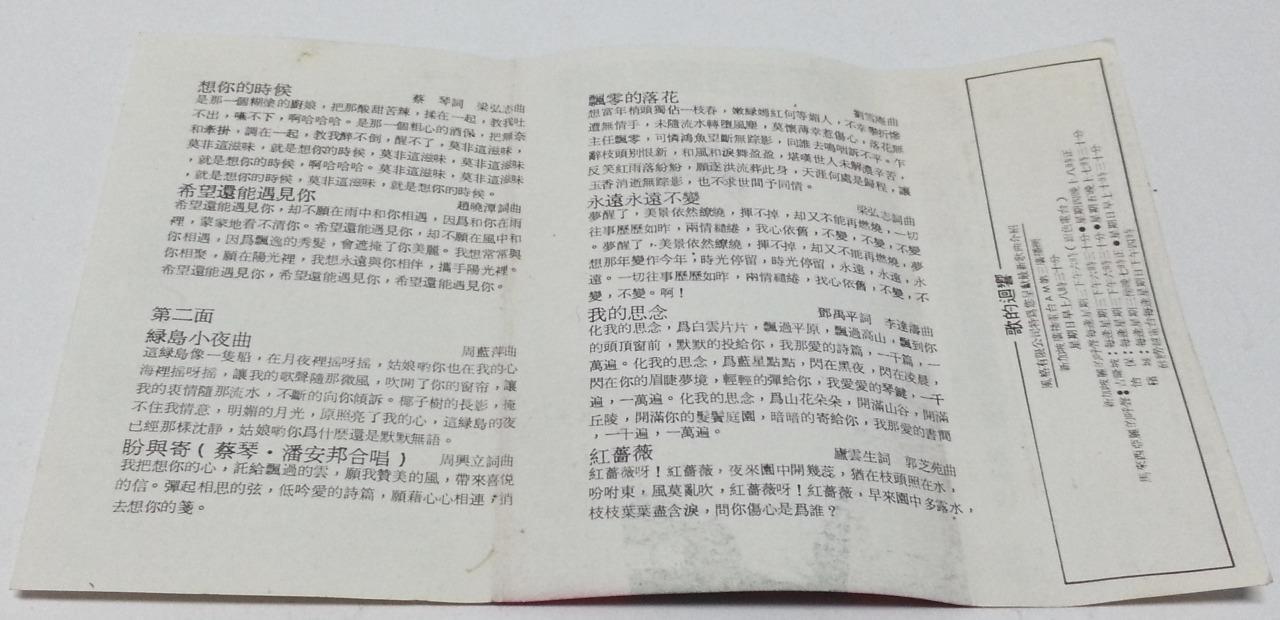 想你的時候
蔡　琴詞　梁弘志曲
是那一個糊塗的廚娘，把那酸甜苦辣，揉在一起，教我吐
不出，嚥不下，啊哈哈哈。是那一個粗心的酒保，把無奈
和牽掛，調在一起，教我醉不倒，醒不了，莫非這滋味，
莫非這滋味，就是想你的時候，莫非這滋味，莫非這滋味
，就是想你的時候，啊哈哈哈。莫非這滋味，莫非這滋味
，就是想你的時候，莫非這滋味，就是想你的時候。
希望還能遇見你
趙曉潭詞曲
希望還能遇見你，却不願在雨中和你相遇，因爲和你在雨
裡，蒙蒙地看不清你。希望還能遇見你，却不願在風中和
你相遇，因爲飄逸的秀髮，會遮掩了你美麗。我想常常與
你相聚，願在陽光裡，我想永遠與你相伴，攜手陽光裡。
希望還能遇見你，希望還能遇見你，希望還能遇見你。
第二面
緑島小夜曲
周藍萍曲
這緑島像一隻船，在月夜裡搖呀搖，姑娘喲你也在我的心
海裡搖呀搖，讓我的歌聲隨那微風，吹開了你的窗帘，讓
我的衷情隨那流水，不斷的向你傾訴。椰子樹的長影，掩
不住我情意，明媚的月光，原照亮了我的心，這緑島的夜
已經那樣沈靜，姑娘喲你爲什麽還是默默無語。
盼與寄（蔡琴・潘安邦合唱）
周興立詞曲
我把想你的心，託給飄過的雲，願我贊美的風，帶來喜悅
的信。彈起相思的弦，低吟愛的詩篇，願藉心心相連；捎
去想你的箋。
飄零的落花
劉雪庵曲
想當年梢頭獨佔一枝春，嫩緑嫣紅何等媚人，不幸攀折慘
遭無情手，未隨流水轉墮風塵，莫懷薄幸惹傷心，落花無
主任飄零，可憐鴻魚望斷無踪影，向誰去嗚咽訴不平。乍
辭枝頭別恨新，和風和淚舞盈盈，堪嘆世人未解濃辛苦，
反笑紅雨落紛紛，願逐洪流葬此身，天涯何處是歸程，讓
玉香消逝無踪影，也不求世間予同情。
永遠永遠不變
梁弘志詞曲
夢醒了，美景依然繚繞，揮不掉，却又不能再燃燒，一切
往事歷歷如昨，兩情繾綣，我心依舊，不變，不變，不變
。夢醒了，美景依然繚繞，揮不掉，却又不能再燃燒，夢
想那年變作今年；時光停留，時光停留，永遠，永遠，永
遠。一切往事歷歷如昨，兩情繾綣，我心依舊，不變，不
變，不變。啊！
我的思念
鄧禹平詞　李達濤曲
化我的思念，爲白雲片片，飄過平原，飄過高山，飄到你
的頭頂窗前，默默的投給你，我那愛的詩篇，一千篇，一
萬遍。化我的思念，爲藍星點點，閃在黑夜，閃在凌晨，
閃在你的眉睫夢境，輕輕的彈給你，我愛愛的琴鍵，一千
遍，一萬遍。化我的思念，爲山花朵朵，開滿山谷，開滿
丘陵，開滿你的髮鬢庭園，暗暗的寄給你，我那愛的書簡
，一千遍，一萬遍。
紅薔薇
盧雲生詞　郭芝苑曲
紅薔薇呀！紅薔薇，夜來園中開幾蕊，猶在枝頭照在水，
吩咐東，風莫亂吹，紅薔薇呀！紅薔薇，早來園中多露水，
枝枝葉葉盡含淚，問你傷心是爲誰？
歌的迴響
風格有限公司特爲您呈獻最新歌曲介紹
星期日早上八時三十分